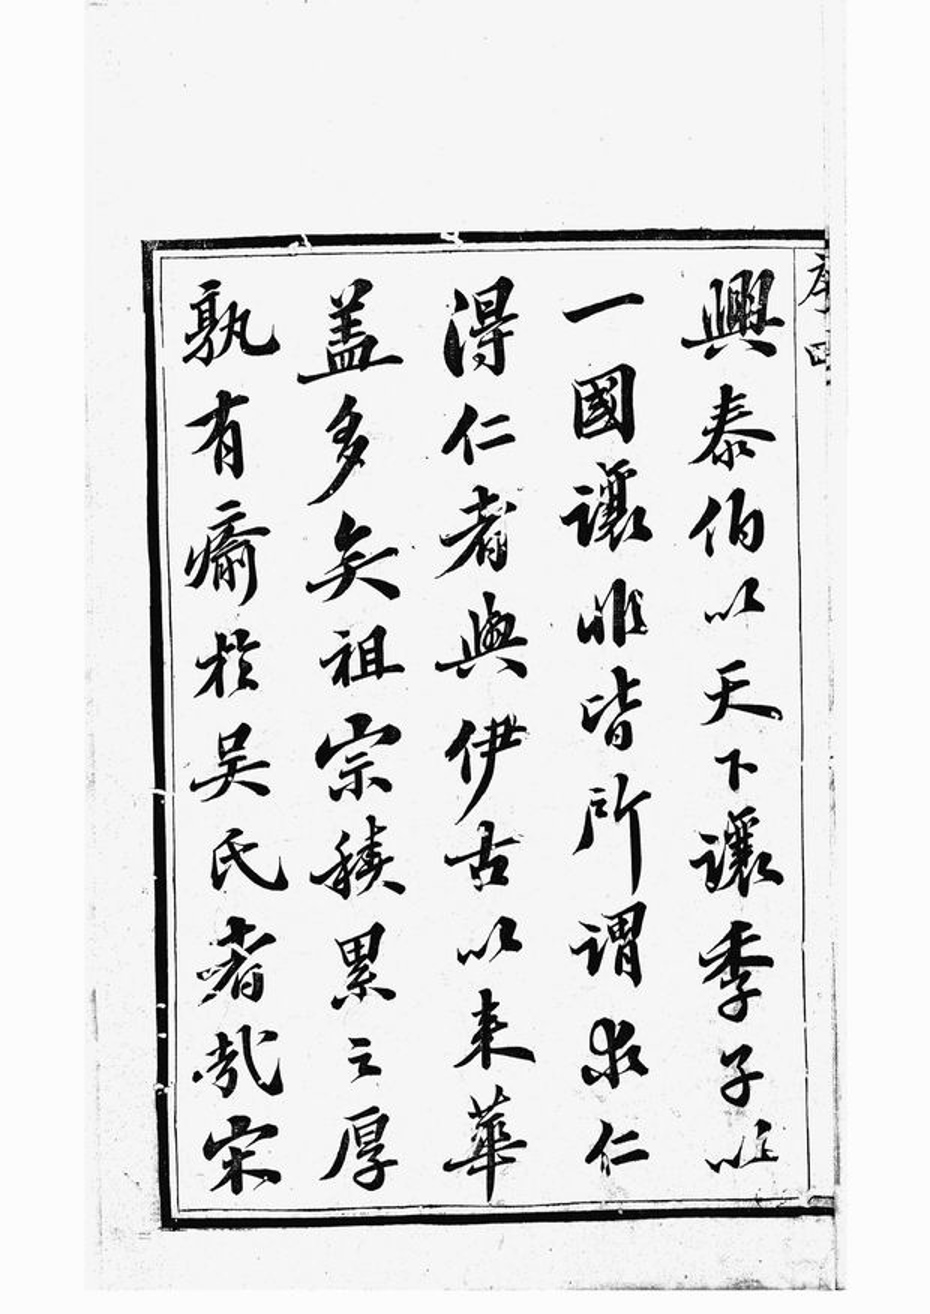 序四
興泰伯以天下讓季子以
一國讓非皆所謂求仁
得仁者與伊古以来華
盖多矣祖宗積累之厚
孰有瘉於吴氏者哉宋